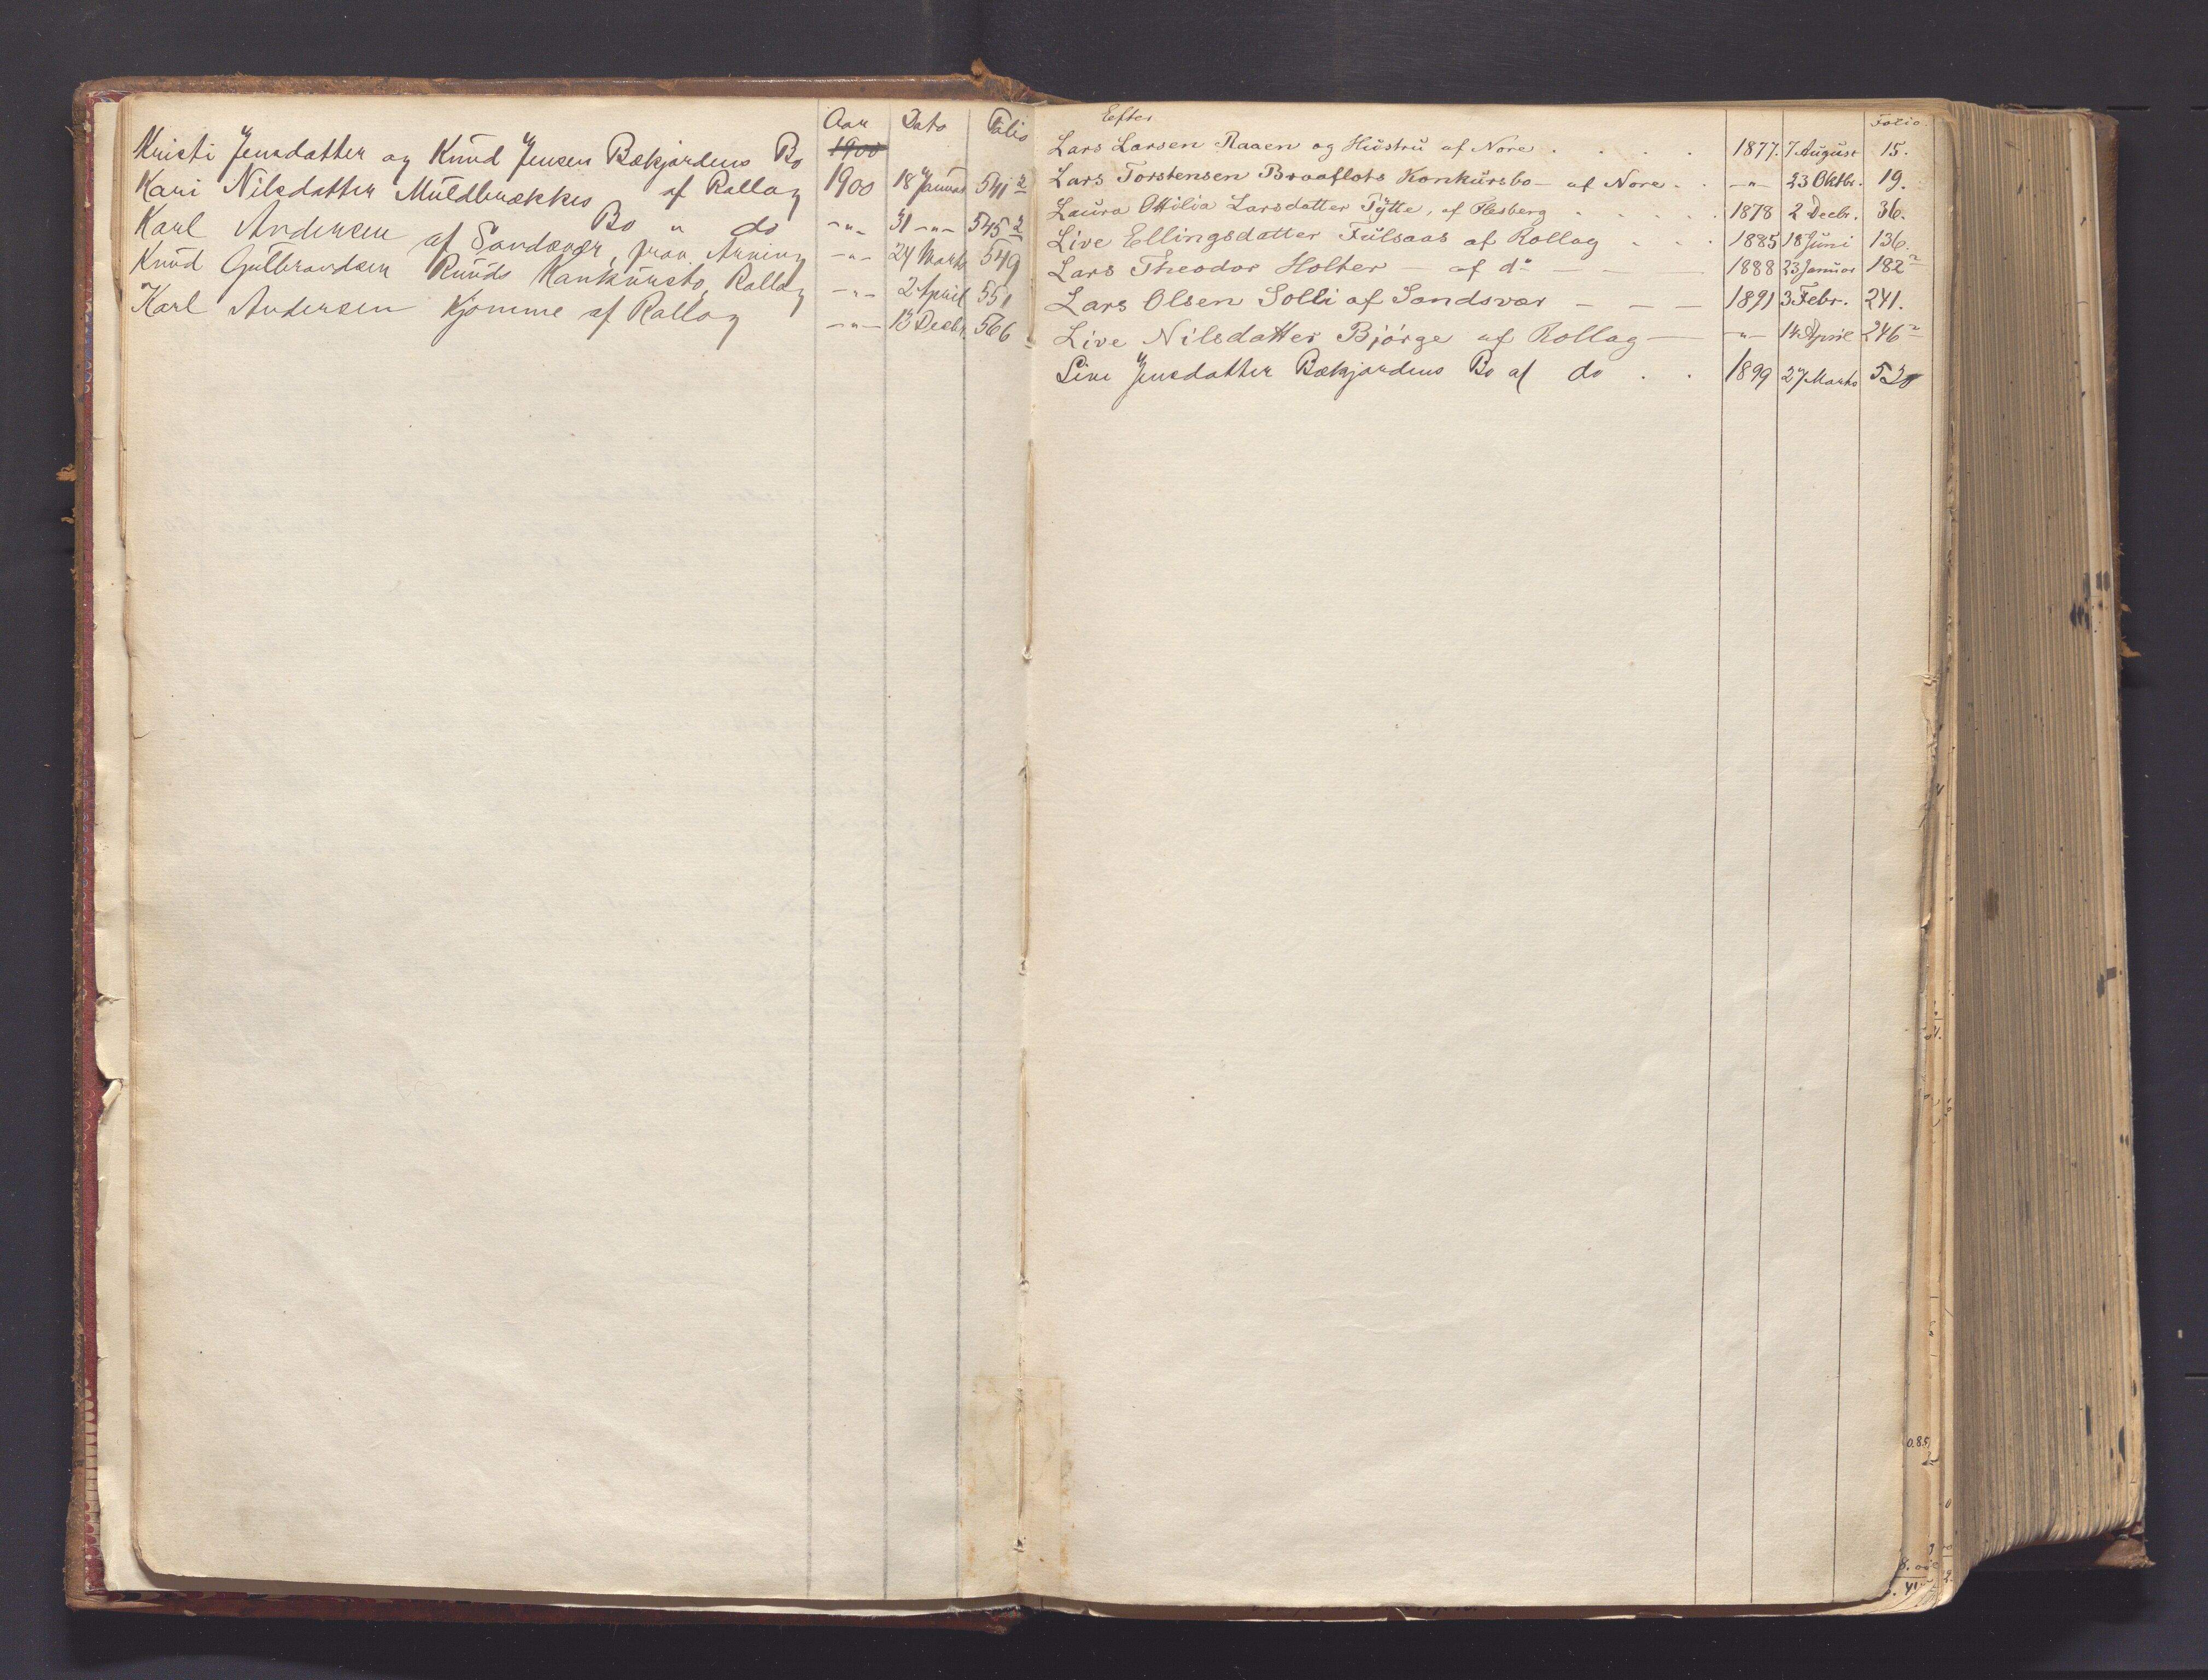 Aar Dato Folio
Kristi Jensdatter og Knud Jensen Bækjordens Bo 1900
af Rollag 1900 18 Januar 541 2
Kari Nilsdatter Muldbrækkes Bo " do -"- 31 -"- 545 2
Karl Andersen af Sandsvær, frav. Arving -"- 24 Marts 549
Knud Gulbrandsen Ruuds Konkursbo, Rollag -"- 2 April 551
Karl Andersen Kjomme af Rollag -"- 13 Decbr. 566
Efter Folio.
Lars Larsen Raaen og Hustru af Nore . . . . 1877. 7 August 15.
Lars Torstensen Braaflots Konkursbo - af Nore . . -"- 23 Oktbr. 19.
Laura Ottilia Larsdatter Tytte, af Flesberg . . . . . 1878 2 Decbr. 36.
Live Ellingsdatter Fulsaas af Rollag . . . 1885 18 Juni 136.
Lars Theodor Holter - af do - - - 1888 23 Januar 182 2
Lars Olsen Solli af Sandsvær - - - 1891 3 Febr. 241.
Live Nilsdatter Bjørge af Rollag - - -"- 14 April 246 2
Live Jensdatter Bækjordens Bo af do . . 1899 27 Marts 520